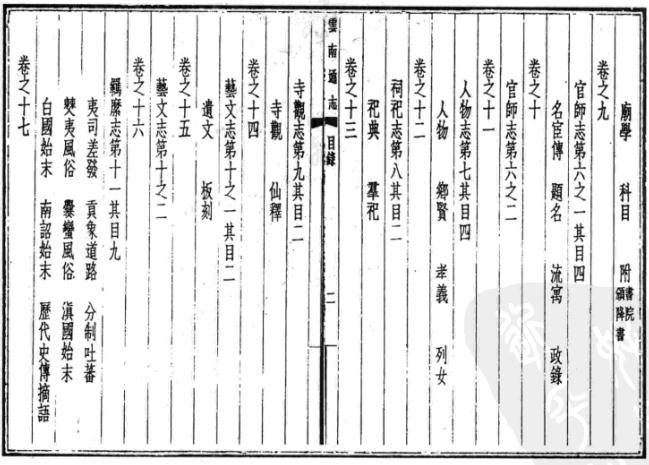 廟學 科目 附書院頒降書
卷之九
官師志第六之一其目四
名宦傳 題名 流寓 政錄
卷之十
官師志第六之二
卷之十一
人物志第七其目四
人物 鄉賢 孝義 列女
卷之十二
祠祀志第八其目二
祀典 羣祀
卷之十三
雲南通志 目錄 二
寺觀志第九其目二
寺觀 仙釋
卷之十四
藝文志第十之一其目二
遺文 板刻
卷之十五
藝文志第十之二
卷之十六
羈縻志第十一其目九
夷司差發 貢象道路 分制吐蕃
僰夷風俗 爨蠻風俗 滇國始末
白國始末 南詔始末 歷代史傳摘語
卷之十七